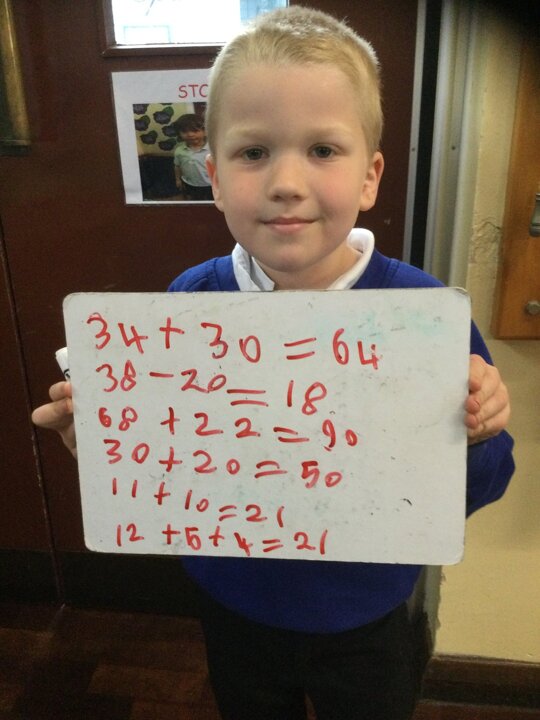 STO
34 + 30 = 64
38 - 20 = 18
68 + 22 = 90
30 + 20 = 50
11 + 10 = 21
12 + 5 + 4 = 21